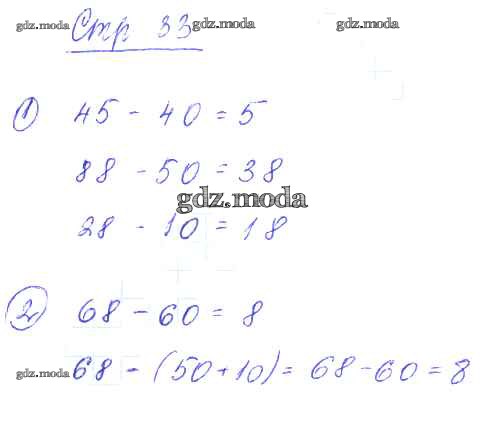 gdz.moda Стр 33 gdz.moda gdz.moda
1 45 - 40 = 5
88 - 50 = 38
gdz.moda
28 - 10 = 18
2 68 - 60 = 8
gdz.moda 68 - (50 + 10) = 68 - 60 = 8
gdz.moda